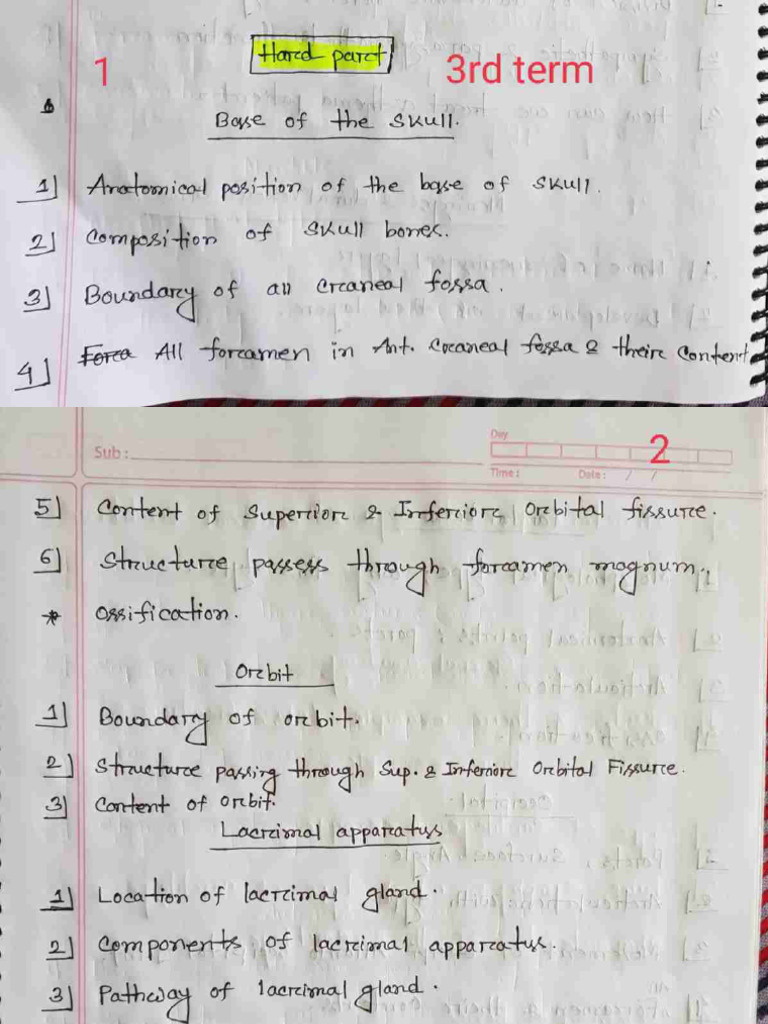 Hard part
1
3rd term
Base of the skull.
1] Anatomical position of the base of skull.
2] Composition of skull bones.
3] Boundary of all craneal fossa.
4] Forea All foramen in Ant. craneal fossa & their content
2
Day
Sub :
Time : Date : / /
5] Content of Superior & Inferior Orbital fissure.
6] Structure passess through foramen magnum.
* Ossification.
Orbit
1] Boundary of orbit.
2] Structure passing through Sup. & Inferior Orbital Fissure.
3] Content of orbit.
Lacrimal apparatus
1] Location of lacrimal gland.
2] Components of lacrimal apparatus.
3] Pathway of lacrimal gland.